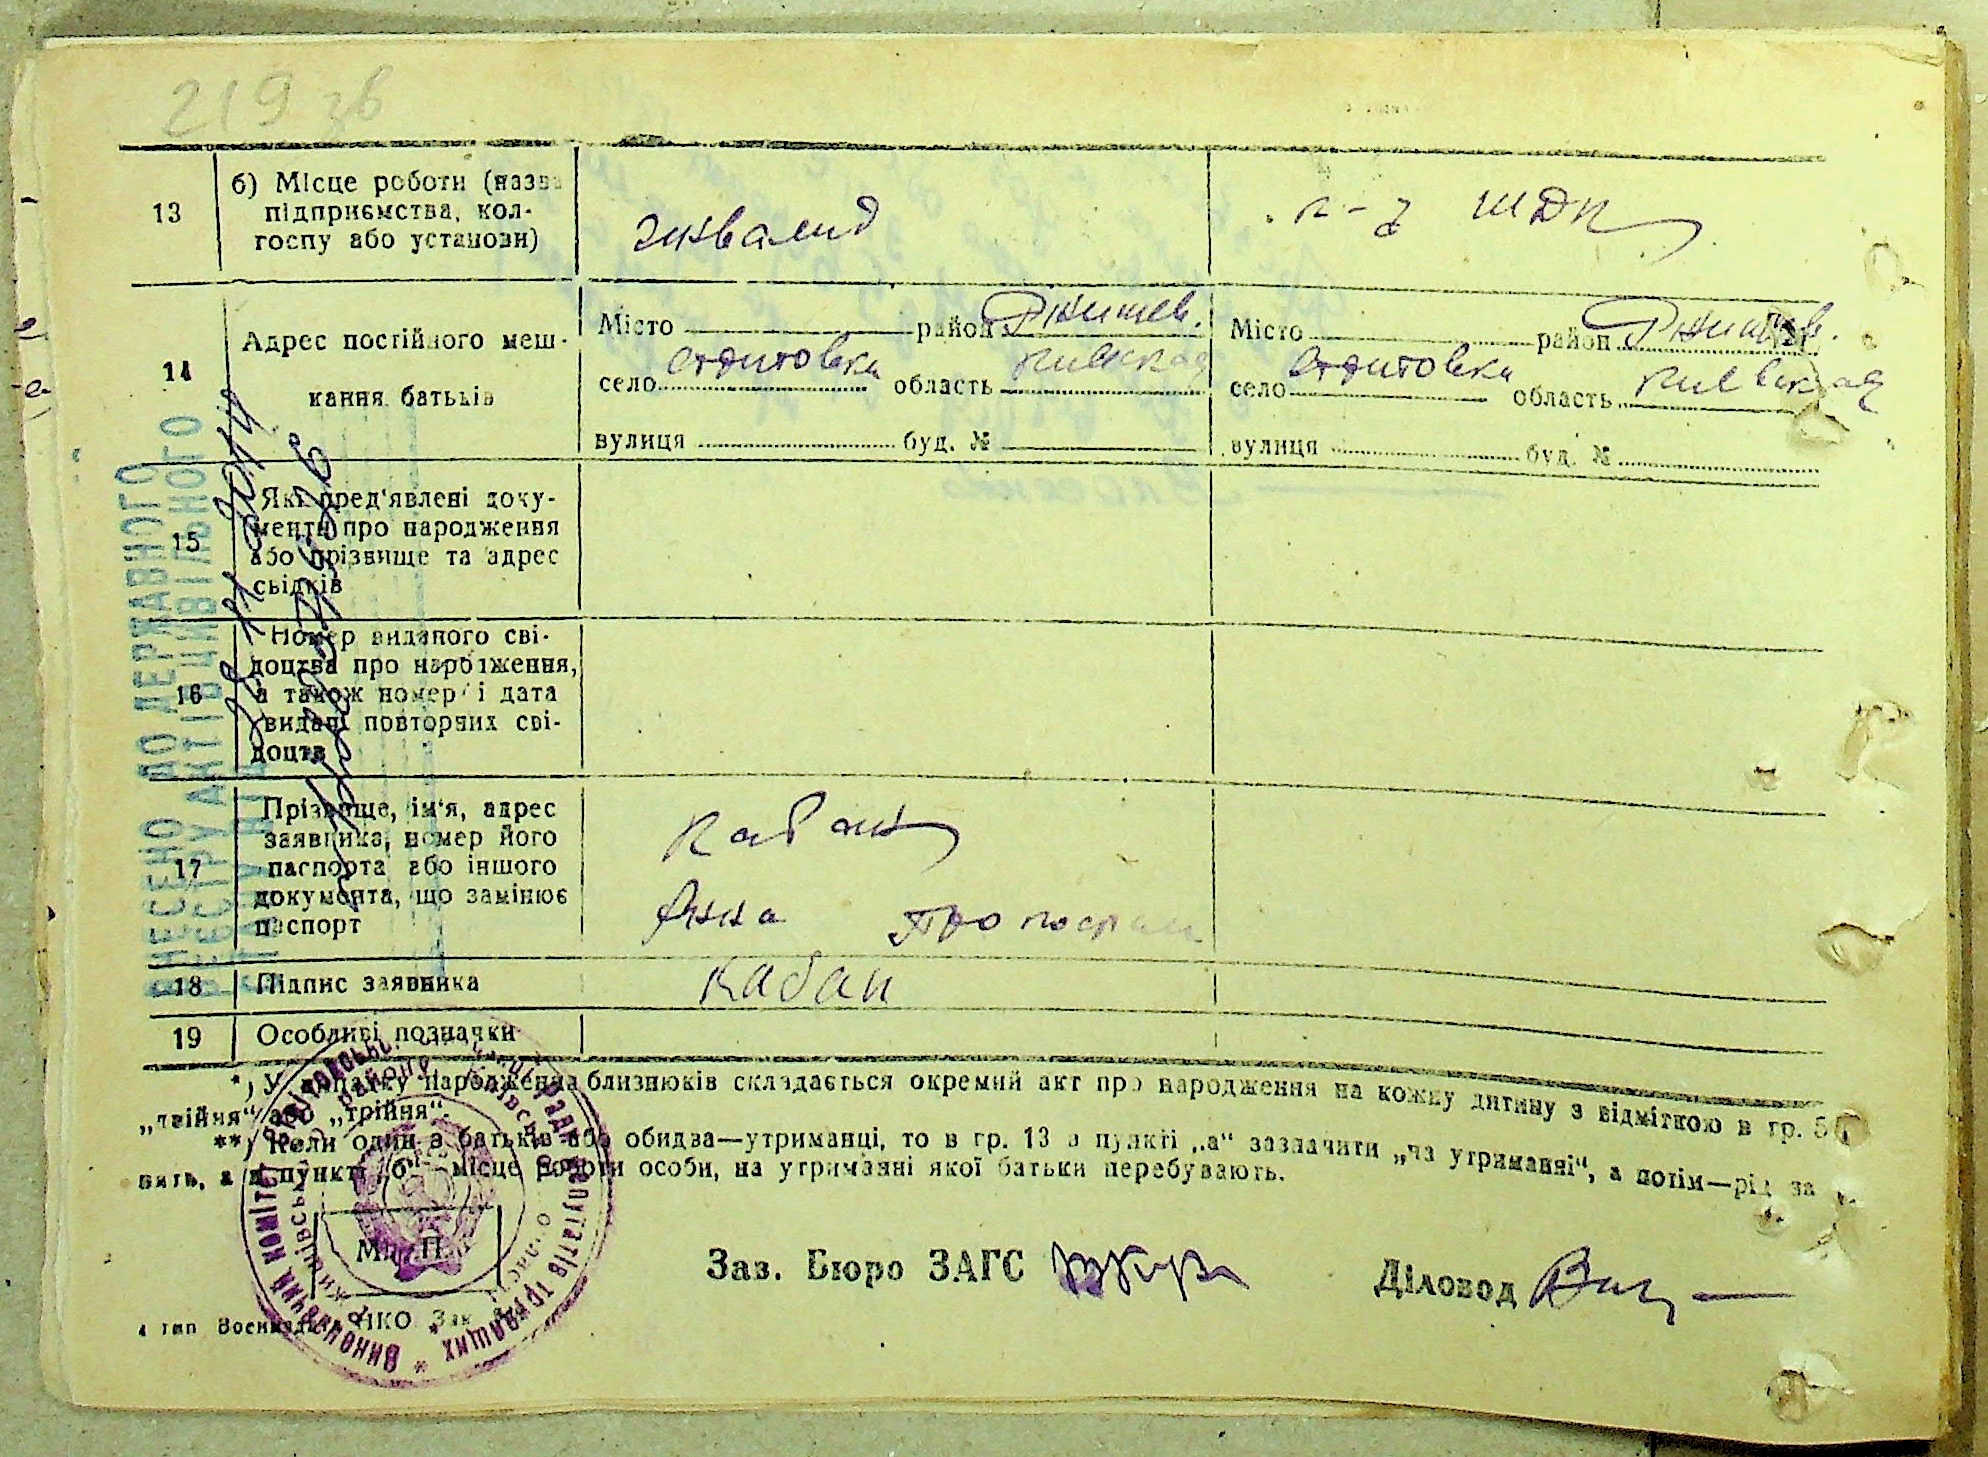 219 зв
13
б) Місце роботи (назва
підприємства, кол-
госпу або установи)
инвалид
к-з ШДК
14
Адрес постійного меш-
кання батьків
Місто район Ржищев.
село Стритовка область Киевская
вулиця буд. №
Місто район Ржищев.
село Стритовка область Киевская
вулиця буд. №
15
Які пред'явлені доку-
менти про народження
або прізвище та адрес
свідків
16
Номер виданого сві-
доцтва про народження,
а також номер і дата
видачі повторних сві-
доцтв
17
Прізвище, ім'я, адрес
заявника, номер його
паспорта або іншого
документа, що замінює
паспорт
Кабан
Анна
18
Підпис заявника
Кабан
19
Особливі позначки
*) У випадку народження близнюків складається окремий акт про народження на кожну дитину з відміткою в гр. 5
„двійня“ або „трійня“.
**) Коли один з батьків або обидва—утриманці, то в гр. 13 в пункті „а“ зазначити „на утриманні“, а потім—рід за
нять, а в пункті „б“—місце роботи особи, на утриманні якої батьки перебувають.
М. П.
Зав. Бюро ЗАГС
Діловод
4 тип Воениздата НКО Зак.
ВНЕСЕНО ДО ДЕРЖАВНОГО
РЕЄСТРУ АКТІВ ЦИВІЛЬНОГО
СТАНУ
Виконавчий комітет
депутатів трудящих